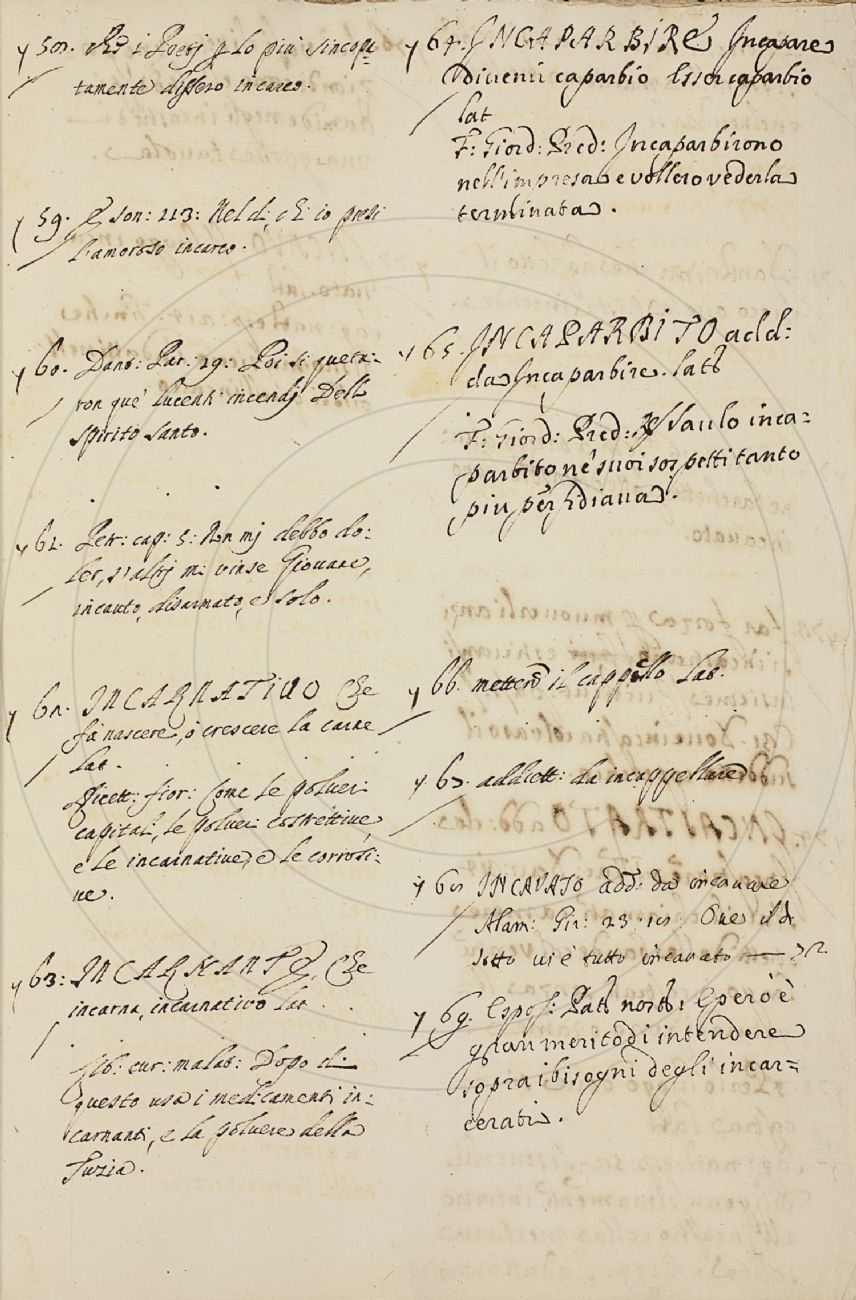 58. Ed i Poetj p lo più sincopa-
tamente dissero incarco.
59. E son: 113: Nel dì, ch' io presi
l'amoroso incarco.
60. Dant: Par: 19: Poi si queta-
ron que' lucenti incendj Dell
Spirito Santo.
61. Petr: cap: 5: Non mj debbo do-
ler, s'altrj mi vinse Giovane,
incauto, disarmato, e solo.
62. INCARNATIUO Che
fà nascere, o crescere la carne
Lat.
Ricett: fior: Come le polveri
capitali, le polveri costrettive
e le incarnative, e le corrosi-
ve.
63: INCARNANTE, Che
incarna, incarnativo Lat
Lib: cur: malat: Dopo di
questo usa i medicamenti in-
carnanti, e la polvere della
Tuzia.
64. INCAPARBIRE Incapare
divenir caparbio Esser caparbio
lat
F: Giord: Pred: Incaparbirono
nell'impresa e vollero vederla
terminata.
65. INCAPARBITO add:
da Incaparbire. lat
F: Giord: Pred: Saulo inca-
parbito ne' suoi sospetti tanto
piu perfidiava.
66. mettere il cappello Lat.
67. addiett: da incappellare
68 INCAVATO add: da incavare
Alam: Gir: 23. Ove il di
sotto vi è tutto incavato — 72
69. Espos: Pat nost: E però è
gran merito di intendere
sopra i bisogni degli incar-
cerati.